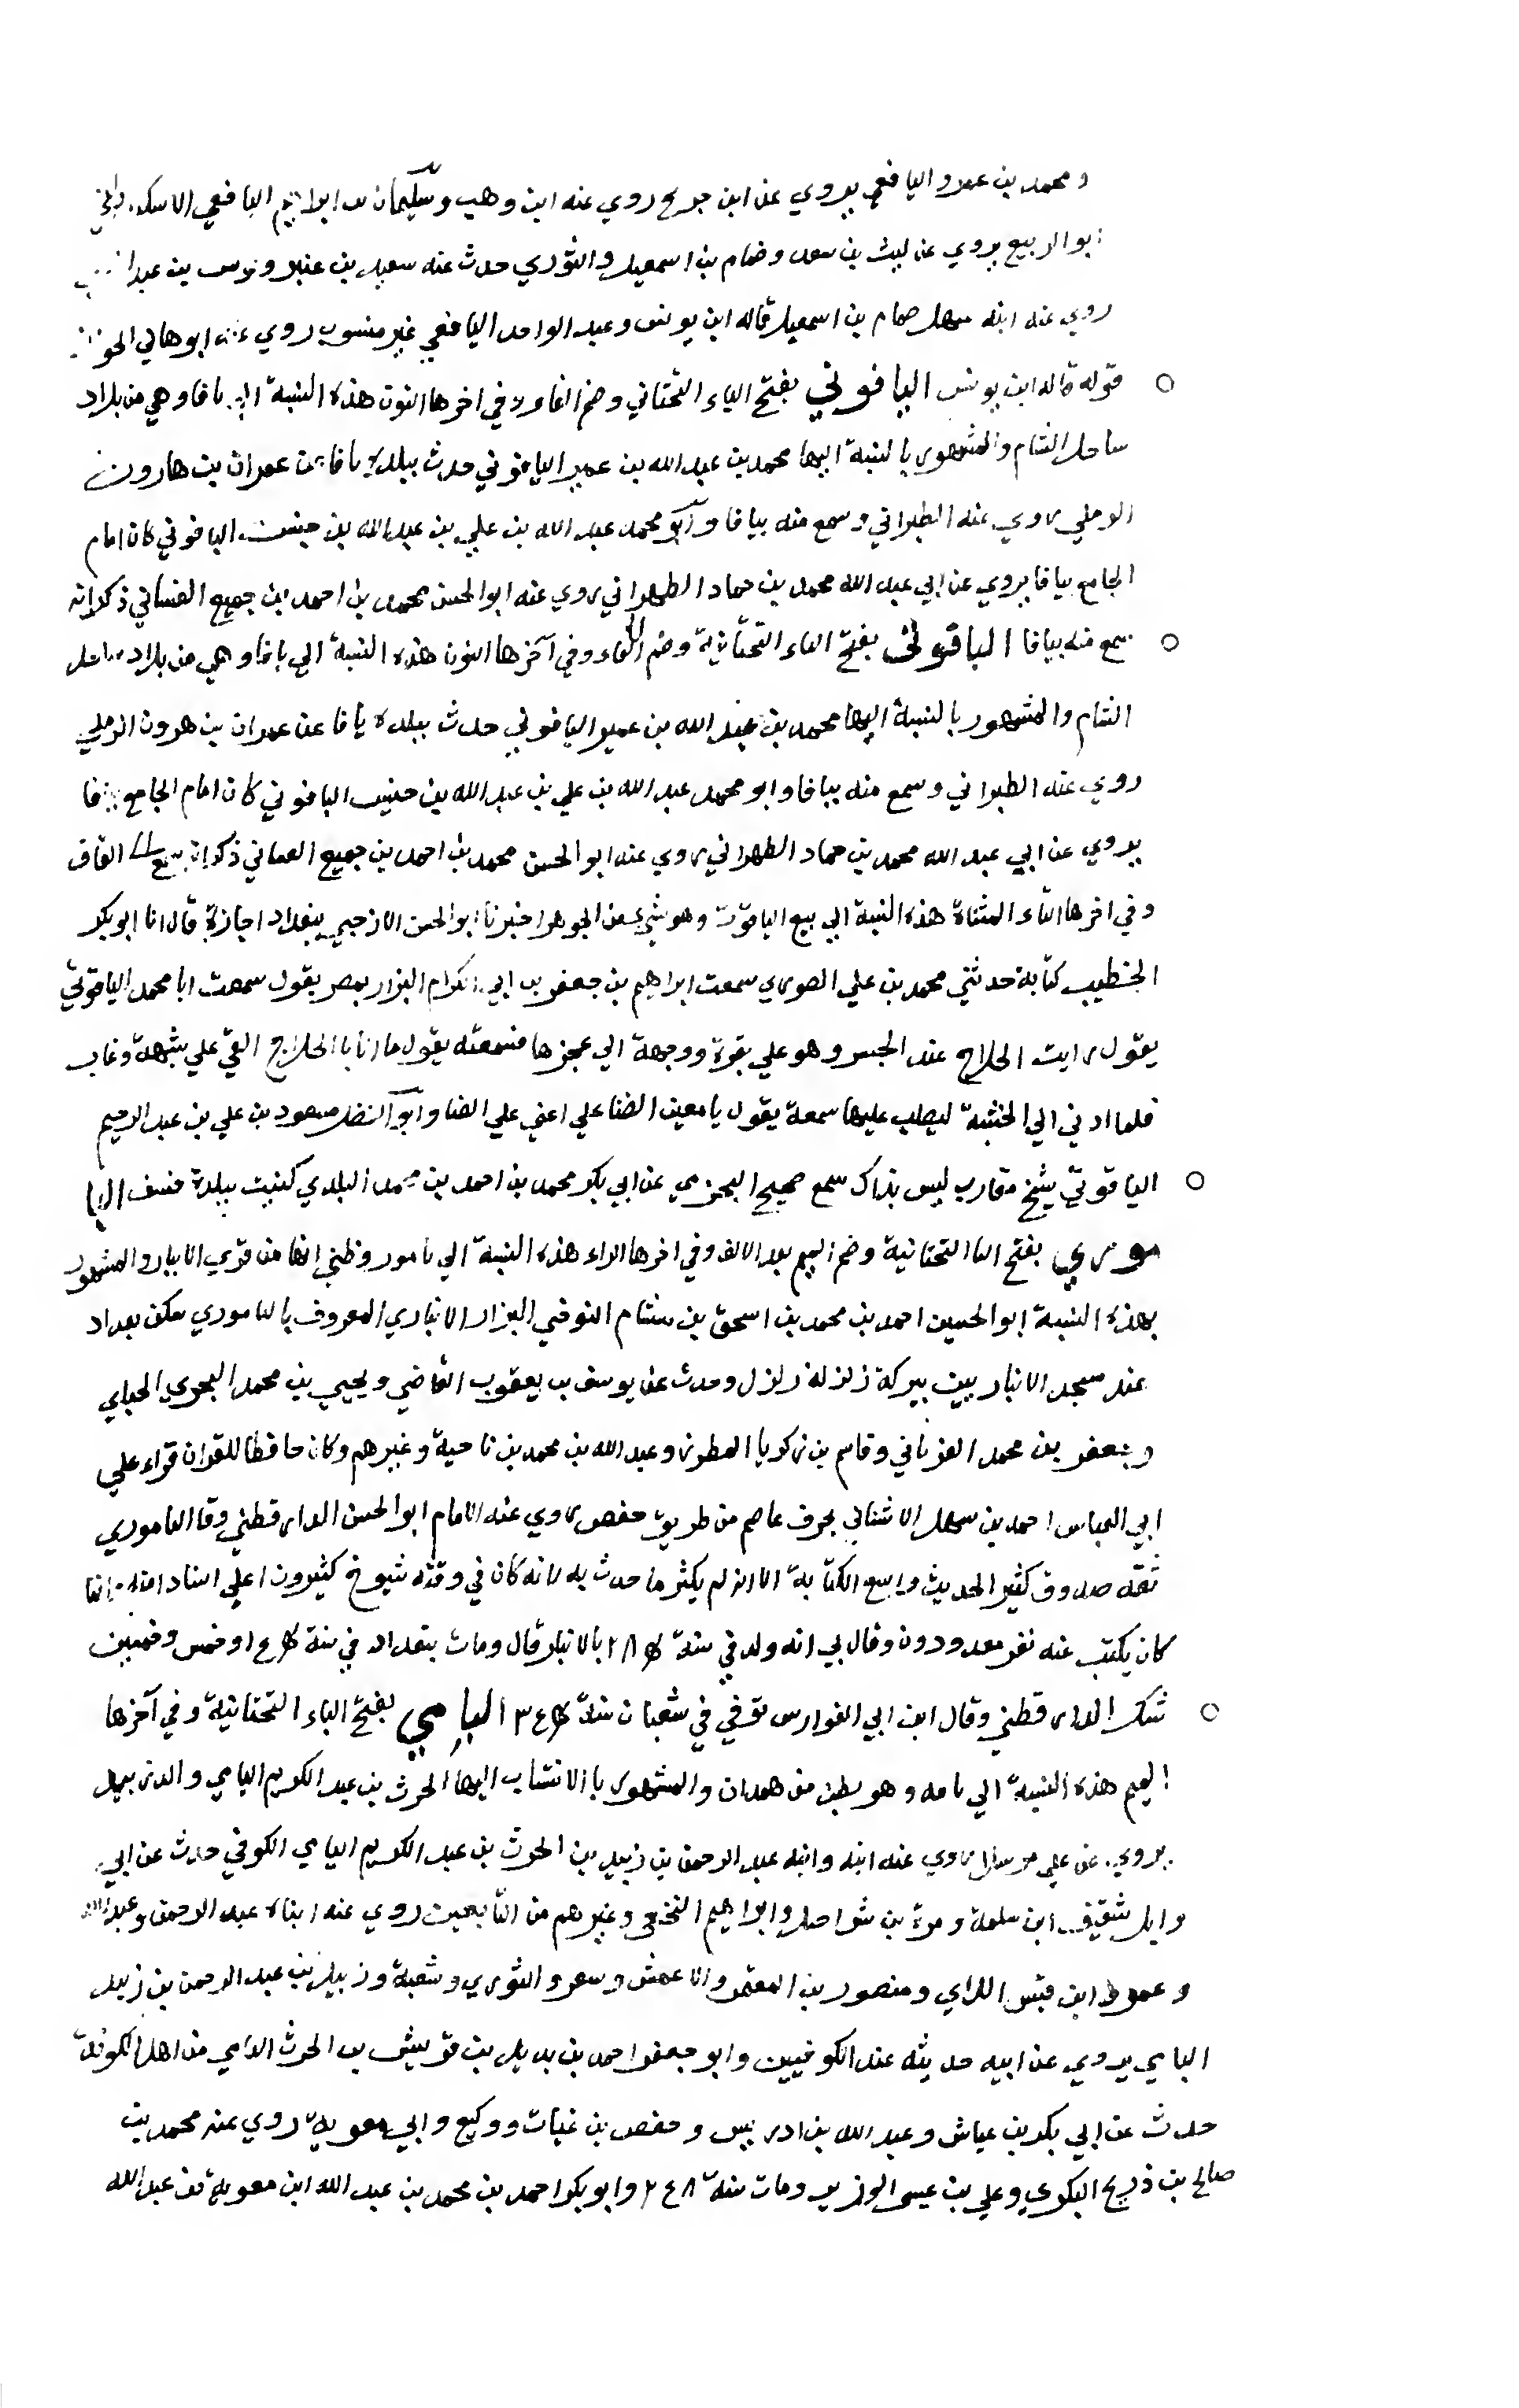 ومحمد بن عمرو اليافعي يروي عن ابن جريج روي عنه ابن وهب وسليمان بن ابراهيم اليافعي الاسكندراني
ابو الربيع يروي عن ليث بن سعد وضمام بن اسمعيل والثوري حدث عنه سعيد بن عفير ويونس بن عبد
روي عنه ابنه سهل ضمام بن اسمعيل قاله ابن يونس وعبد الواحد اليافعي غير منسوب روي عنه ابو هاني الخولاني
قوله قاله ابن يونس اليافوني بفتح الياء التحتاني وضم الفاء وفي اخرها النون هذه النسبة الي يافا وهي من بلاد
ساحل الشام والمشهور بالنسبة اليها محمد بن عبد الله بن عمير اليافوني حدث ببلده يافا عن عمران بن هارون
الرملي روي عنه الطبراني وسمع منه بيافا وابو محمد عبد الله بن علي بن عبد الله بن حنيس اليافوني كان امام
الجامع بيافا يروي عن ابي عبد الله محمد بن حماد الطهراني روي عنه ابو الحسن محمد بن احمد بن جميع الغساني ذكر انه
سمع منه بيافا الياقوتي بفتح الياء التحتانية وضم الفاء وفي آخرها النون هذه النسبة الي يافا وهي من بلاد ساحل
الشام والمشهور بالنسبة اليها محمد بن عبد الله بن عمير اليافوني حدث ببلده يافا عن عمران بن هرون الرملي
روي عنه الطبراني وسمع منه بيافا وابو محمد عبد الله بن علي بن عبد الله بن حنيس اليافوني كان امام الجامع بيافا
يروي عن ابي عبد الله محمد بن حماد الطهراني روي عنه ابو الحسن محمد بن احمد بن جميع الغساني ذكر انه سمع القاف
وفي اخرها التاء المثناة هذه النسبة الي بيع الياقوت وهو شيء من الجوهر اخبرنا ابو الحسن الازجي ببغداد اجازة قال انا ابو بكر
الخطيب كتابة حدثني محمد بن علي الصوري سمعت ابراهيم بن جعفر بن ابي الكرام البزار بمصر يقول سمعت ابا محمد الياقوتي
يقول رايت الحلاج عند الجسر وهو علي بقرة ووجهه الي عجزها فسمعته يقول ما انا بالحلاج القي علي شبهه وغاب
فلما ادني الي الخشبة ليصلب عليها سمعته يقول يا معين الضنا علي اعني علي الضنا وابو النضر مسعود بن علي بن عبد الرحيم
الياقوتي شيخ مقارب ليس بذاك سمع صحيح البحري عن ابي بكر محمد بن احمد بن محمد البلدي كتبت ببلدة نسف اليا
موري بفتح اليا التحتانية وضم الميم بعد الالف وفي اخرها الراء هذه النسبة الي يامور وظني انها من قري الانبار والمشهور
بهذه النسبة ابو الحسين احمد بن محمد بن اسحق بن هشام النوفي البزار الانباري المعروف باليموري سكن بغداد
عند مسجد الانباريين ببركة زلزلة زلزل وحدث عن يوسف بن يعقوب القاضي ويحيي بن محمد البحري الحباي
وجعفر بن محمد الفرياني وقاسم بن زكريا المطرز وعبد الله بن محمد بن ناجية وغيرهم وكان حافظا للقران قراء علي
ابي العباس احمد بن سهل الاشناني بحرف عاصم من طريق حفص روي عنه الامام ابو الحسن الدارقطني وقال اليموري
ثقة صدوق كثير الحديث واسع الكتابة الا انه لم يكثر ما حدث به لانه كان في وقته شيوخ كثيرون اعلي اسنادا منه وانما
كان يكتب عنه نفر معدودون وقال لي انه ولد في سنة ٢٨١ بالانبار قال ومات ببغداد في سنة اربع او خمس وخمسين
شك الدارقطني وقال ابن ابي الفوارس توفي في شعبان سنة ٣٤ اليامي بفتح الياء التحتانية وفي آخرها
الميم هذه النسبة الي يامه وهو بطن من همدان والمشهور بالانتساب اليها الحرث بن عبد الكريم اليامي والد زبيد
يروي عن علي مرسلا روي عنه ابنه وابنه عبد الرحمن بن زبيد بن الحرث بن عبد الكريم اليامي الكوفي حدث عن ابي
وايل شقيق ابن سلمة ومرة بن شراحيل وابراهيم النخعي وغيرهم من التابعين روي عنه ابناه عبد الرحمن وعبد الله
وعمرو ابن قيس الملاي ومنصور بن المعتمر والاعمش ومسعر والثوري وشعبة وزبيد بن عبد الرحمن بن زبيد
اليامي يروي عن ابيه حديثه عند الكوفيين وابو جعفر احمد بن بديل بن قريش بن الحرث اليامي من اهل الكوفة
حدث عن ابي بكر بن عياش وعبد الله بن ادريس وحفص بن غياث ووكيع وابي معوية روي عنه محمد بن
صالح بن ذريح العكبري وعلي بن عيسى الوزير ومات سنة ٢٤٨ وابو بكر احمد بن محمد بن عبد الله ابن معوية بن عبد الله